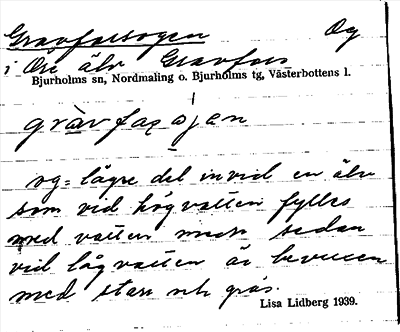 Gravforsogen Og
i Öre älv Gravfors
Bjurholms sn, Nordmaling o. Bjurholms tg, Västerbottens l.
gràvfasǫjen
og = lägre del invid en älv
som vid högvatten fylles
med vatten men sedan
vid lågvatten är bevuxen
med starr och gräs.
Lisa Lidberg 1939.